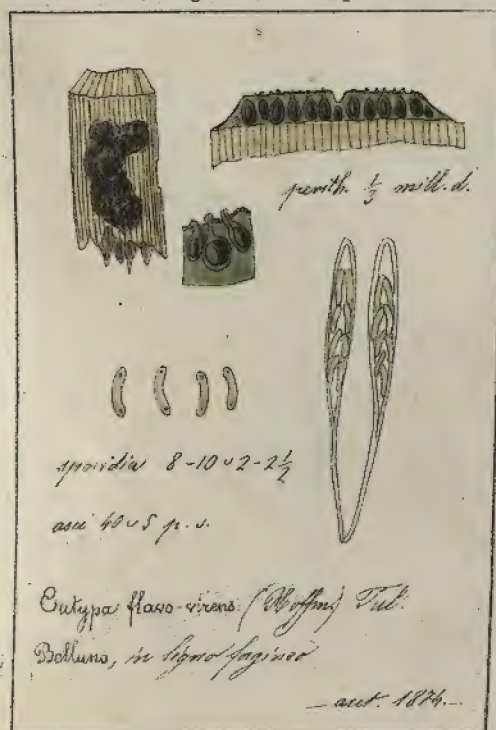 perith. 1/3 mill. d.
sporidia 8-10 ∪ 2-2 1/2
asci 40 ∪ 5 p. s.
Eutypa flavo-virens (Hoffm) Tul.
Belluno, in ligno fagineo
— aut. 1874. —